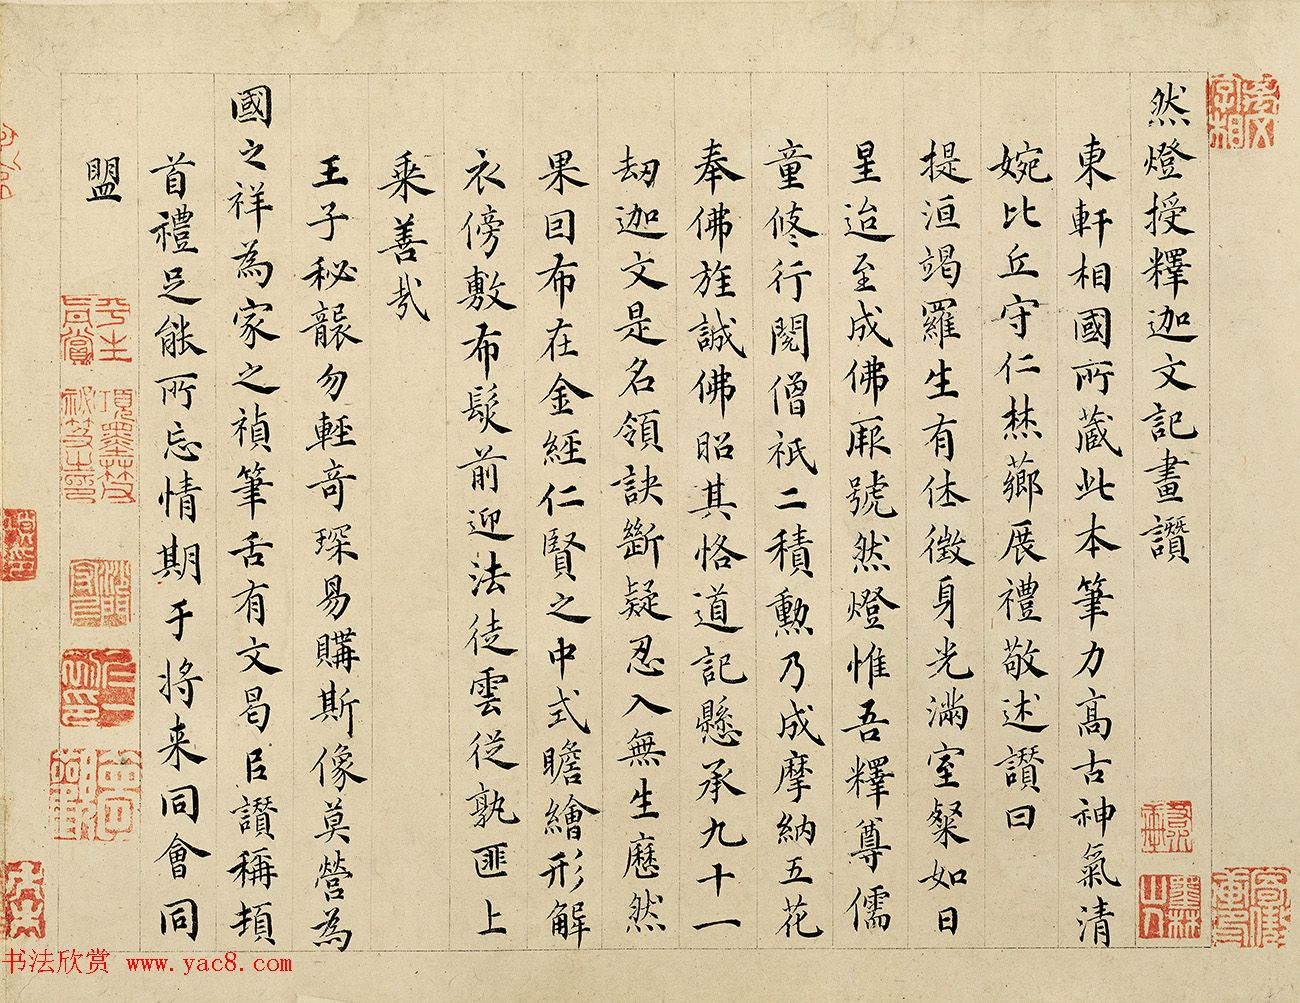 然燈授釋迦文記畫讚
東軒相國所藏此本筆力高古神氣清
婉比丘守仁焚薌展禮敬述讚曰
提洹竭羅生有休徵身光滿室粲如日
星迨至成佛厥號然燈惟吾釋尊儒
童修行閱僧祇二積勲乃成摩納五花
奉佛旌誠佛昭其恪道記懸承九十一
劫迦文是名領訣斷疑忍入無生歷然
果因布在金經仁賢之中式瞻繪形解
衣傍敷布髮前迎法徒雲從孰匪上
乘善哉
王子秘襲勿輕奇琛易購斯像莫營為
國之祥為家之禎筆舌有文曷臣讚稱頓
首禮足能所忘情期于將来同會同
盟
书法欣赏 www.yac8.com